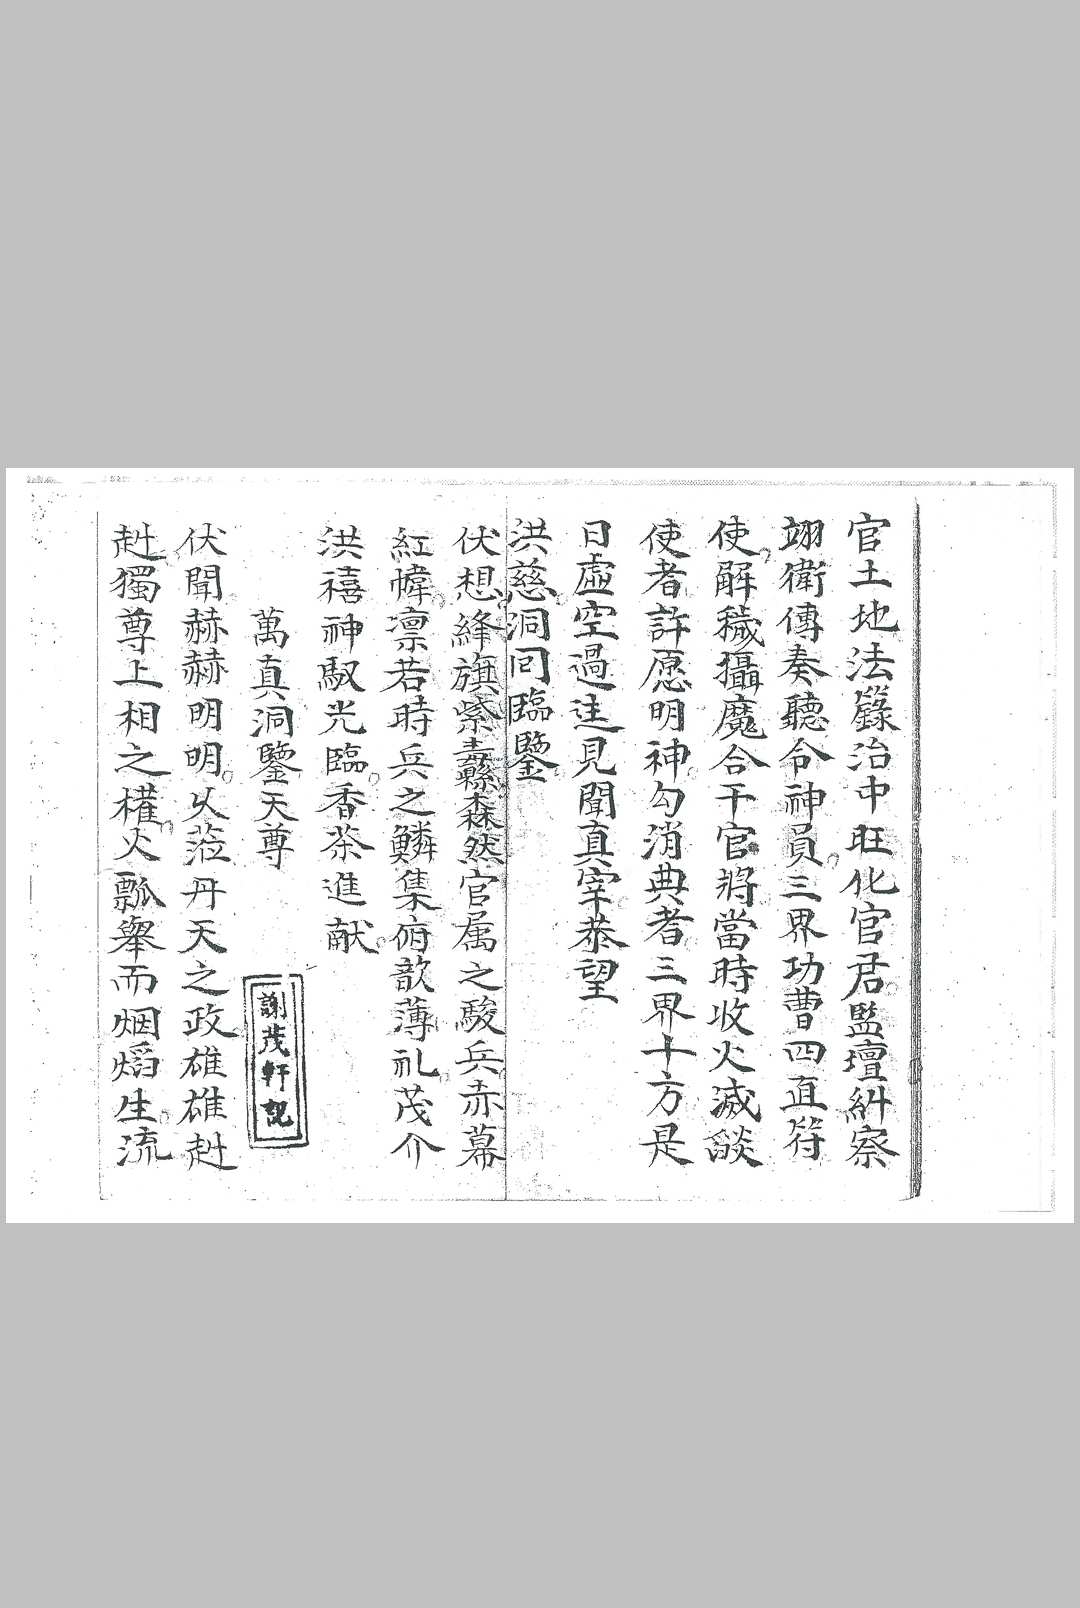 官土地法籙治中旺化官君監壇糾察
翊衛傳奏聽令神員三界功曹四直符
使解穢攝魔合干官將當時收火滅燄
使者許愿明神勾消典者三界十方是
日虛空過徃見聞真宰恭望
洪慈洞囘臨鑒
伏想絳旗紫纛森然官属之駿兵赤幕
紅幃凛若時兵之鱗集俯歆薄礼茂介
洪禧神馭光臨香茶進献
萬真洞鑒天尊
謝茂軒記
伏聞赫赫明明火蒞丹天之政雄雄赳
赳獨尊上相之權火瓢舉而烟熖生流